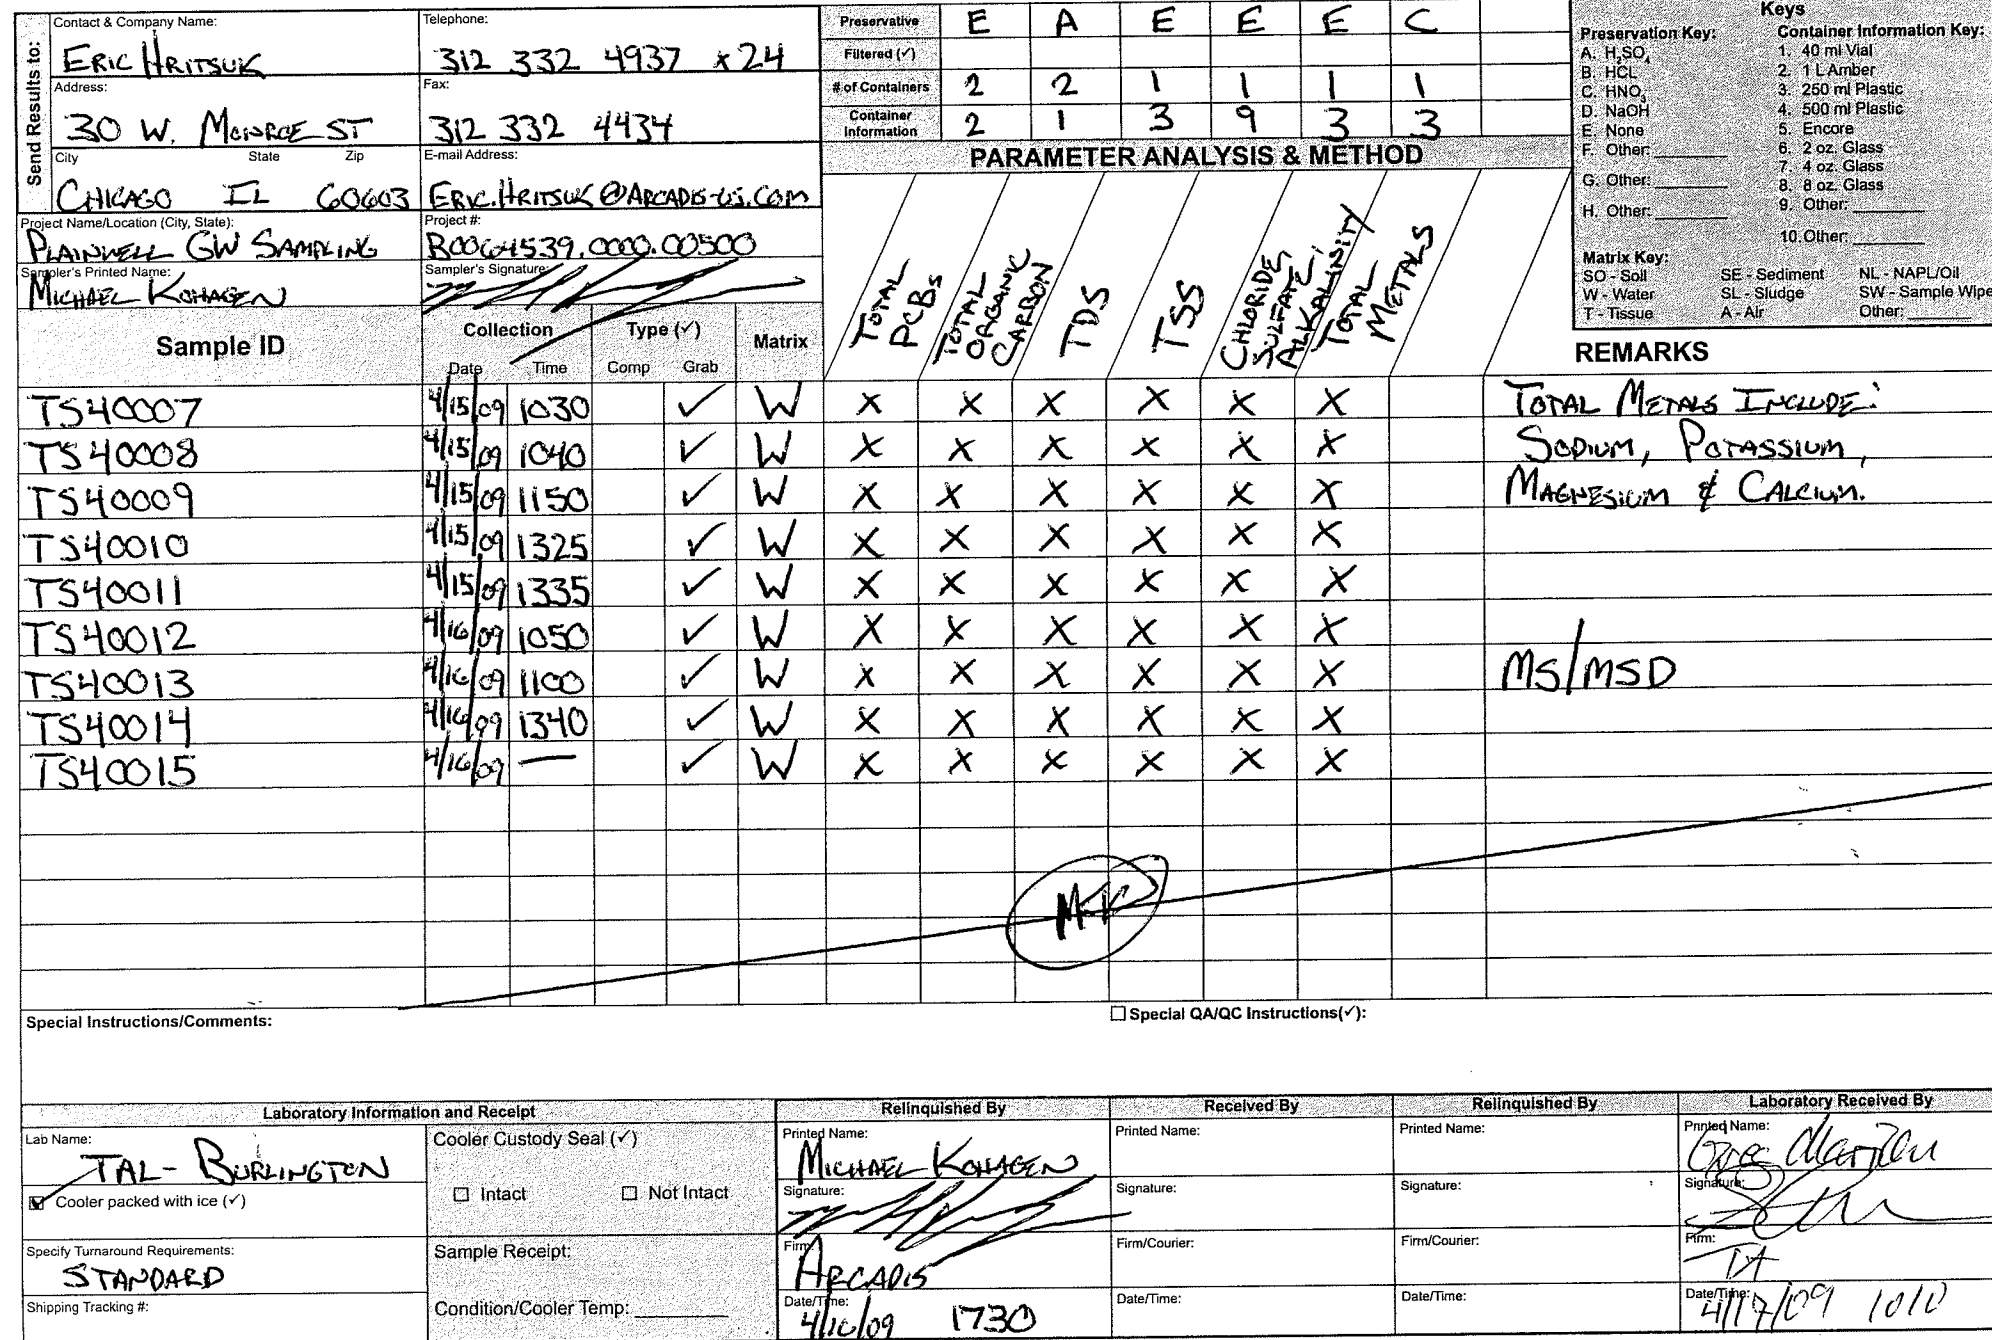 Contact & Company Name:
ERIC HRITSUK
Telephone:
312 332 4937 x24
Send Results to:
Address:
30 W. MONROE ST
Fax:
312 332 4434
City State Zip
CHICAGO IL 60603
E-mail Address:
ERIC.HRITSUK@ARCADIS-US.COM
Project Name/Location (City, State):
PLAINWELL GW SAMPLING
Project #:
B0064539.0000.00500
Sampler's Printed Name:
MICHAEL KOHAGEN
Sampler's Signature:
Preservative E A E E E C
Filtered (✓)
# of Containers 2 2 1 1 1 1
Container Information 2 1 3 9 3 3
PARAMETER ANALYSIS & METHOD
TOTAL PCBs
TOTAL ORGANIC CARBON
TDS
TSS
CHLORIDE, SULFATE, ALKALINITY
TOTAL METALS
Keys
Preservation Key:
A. H2SO4
B. HCL
C. HNO3
D. NaOH
E. None
F. Other:
G. Other:
H. Other:
Container Information Key:
1. 40 ml Vial
2. 1 L Amber
3. 250 ml Plastic
4. 500 ml Plastic
5. Encore
6. 2 oz. Glass
7. 4 oz. Glass
8. 8 oz. Glass
9. Other:
10. Other:
Matrix Key:
SO - Soil SE - Sediment NL - NAPL/Oil
W - Water SL - Sludge SW - Sample Wipe
T - Tissue A - Air Other:
Sample ID Collection Type (✓) Matrix REMARKS
Date Time Comp Grab
TS40007 4/15/09 1030 ✓ W X X X X X X TOTAL METALS INCLUDE:
TS40008 4/15/09 1040 ✓ W X X X X X X SODIUM, POTASSIUM,
TS40009 4/15/09 1150 ✓ W X X X X X X MAGNESIUM & CALCIUM.
TS40010 4/15/09 1325 ✓ W X X X X X X
TS40011 4/15/09 1335 ✓ W X X X X X X
TS40012 4/16/09 1050 ✓ W X X X X X X
TS40013 4/16/09 1100 ✓ W X X X X X X MS/MSD
TS40014 4/16/09 1340 ✓ W X X X X X X
TS40015 4/16/09 — ✓ W X X X X X X
MK
Special Instructions/Comments:
Special QA/QC Instructions(✓):
Laboratory Information and Receipt
Lab Name:
TAL - BURLINGTON
Cooler packed with ice (✓)
Specify Turnaround Requirements:
STANDARD
Shipping Tracking #:
Cooler Custody Seal (✓)
Intact Not Intact
Sample Receipt:
Condition/Cooler Temp:
Relinquished By
Printed Name:
MICHAEL KOHAGEN
Signature:
Firm:
ARCADIS
Date/Time:
4/16/09 1730
Received By
Printed Name:
Signature:
Firm/Courier:
Date/Time:
Relinquished By
Printed Name:
Signature:
Firm/Courier:
Date/Time:
Laboratory Received By
Printed Name:
Signature:
Firm:
TA
Date/Time:
4/17/09 1010